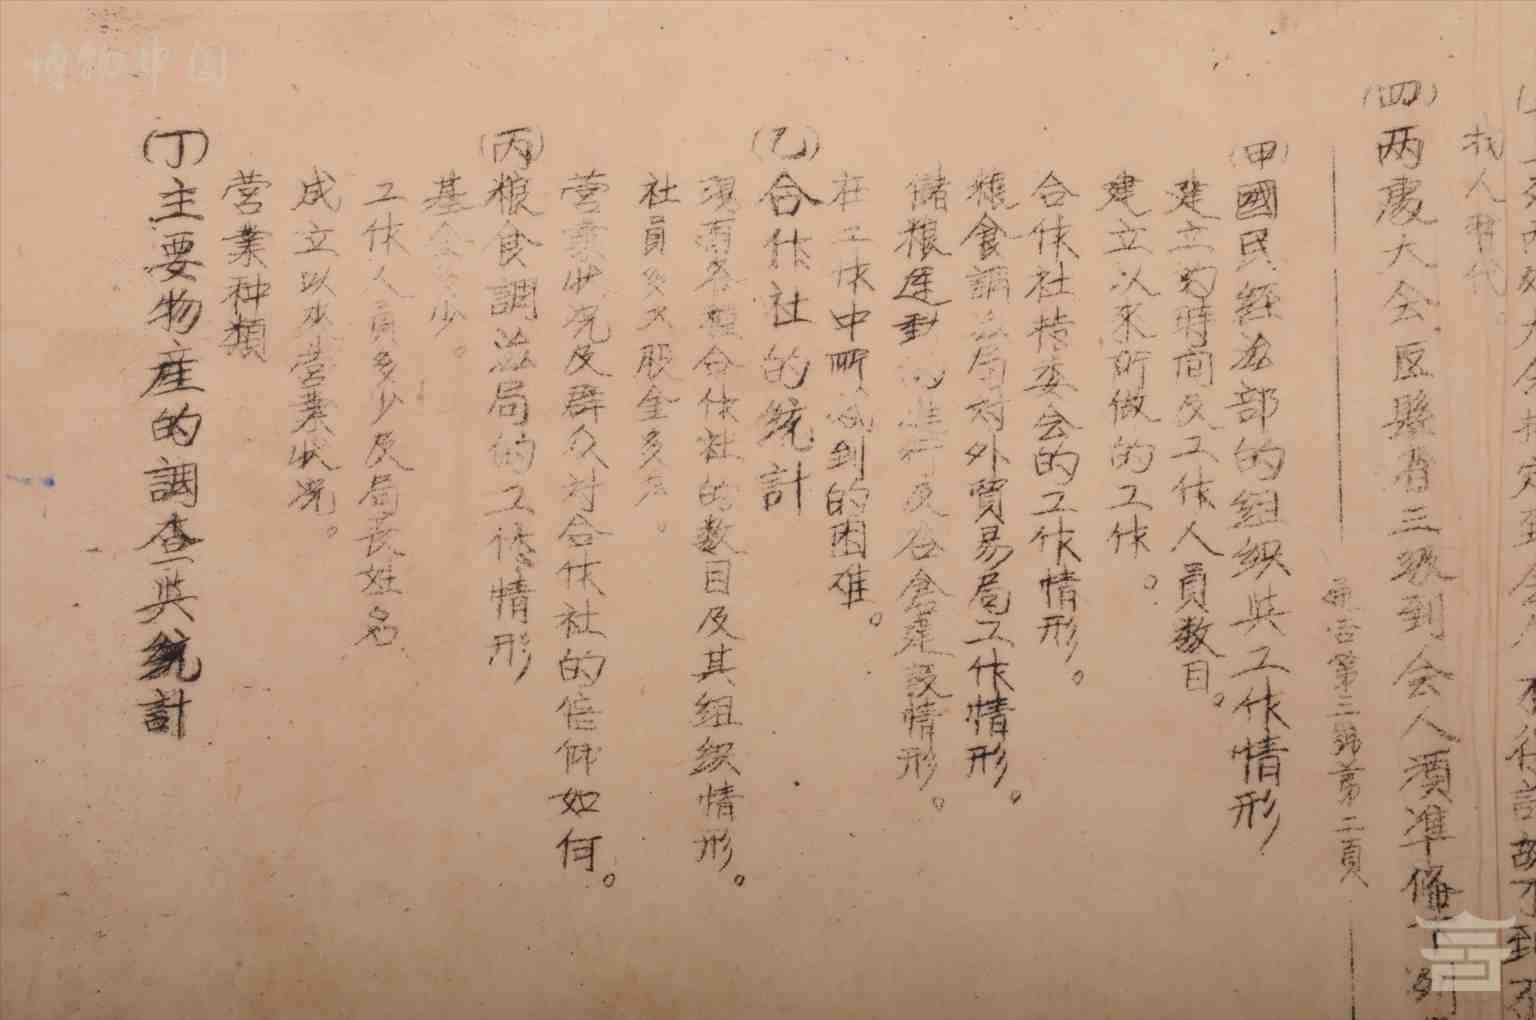 找人替代。
(四)两处大会区县省三级到会人须准备下列
通告第三号第二頁
(甲)國民经济部的组织與工作情形
建立的時间及工作人員数目。
建立以来所做的工作。
合作社指委会的工作情形。
粮食調济局对外貿易局工作情形。
儲粮运動的進行及谷倉建設情形。
在工作中所感到的困难。
(乙)合作社的統計
現有各種合作社的数目及其组织情形。
社員多少股金多少。
营業状况及群众对合作社的信仰如何。
(丙)粮食調济局的工作情形
基金多少。
工作人員多少及局長姓名
成立以来营業状况。
营業种類
(丁)主要物産的調查與統計
博物中国